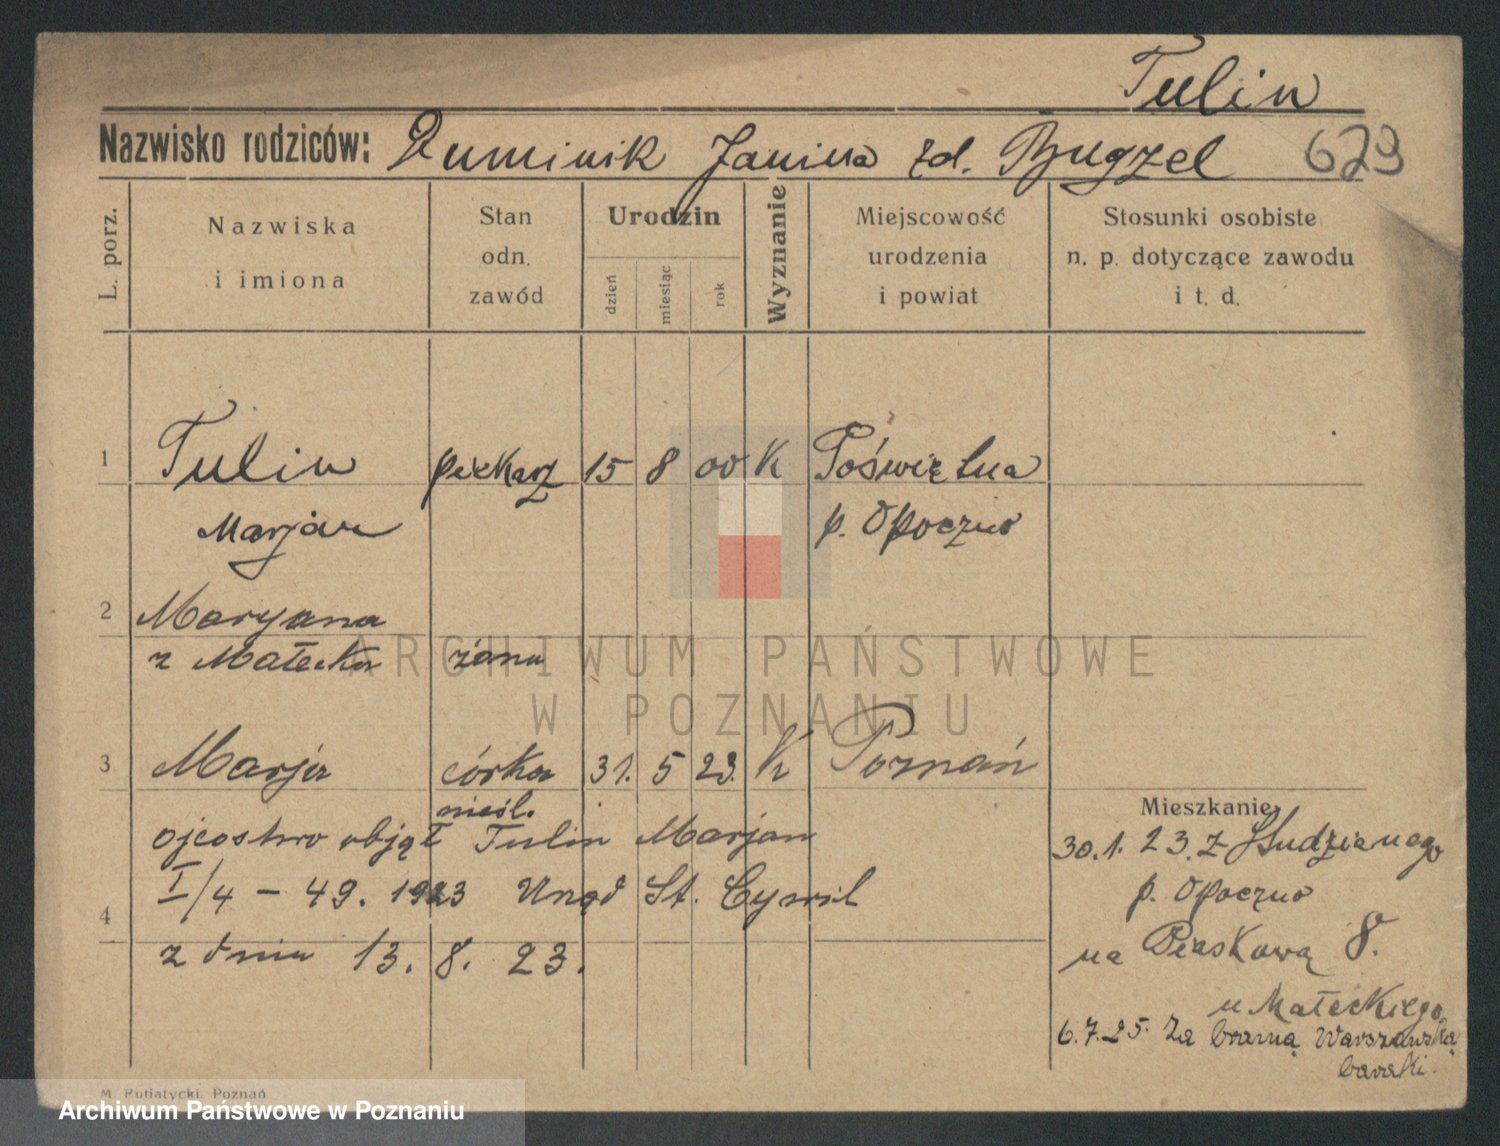 Tulin
Nazwisko rodziców: Duminik Janina zd. Bugzel 629
L. porz.
Nazwiska
i imiona
Stan
odn.
zawód
Urodzin
dzień
miesiąc
rok
Wyznanie
Miejscowość
urodzenia
i powiat
Stosunki osobiste
n. p. dotyczące zawodu
i t. d.
1 Tulin piekarz 15 8 00 K Poświętna
Marjan p. Opoczno
2 Maryana
z Małecka żona
3 Marja córka 31. 5 23. K Poznań
nieśl.
ojcostwo objął Tulin Marjan
I/4 - 49. 1923 Urząd St. Cywil
4
z dnia 13. 8. 23.
Mieszkanie
30.1.23. z Studzianego
p. Opoczno
na Piaskową 8.
u Małeckiego
6.7.25. Za bramą Warszawską
baraki.
M. Putiatycki, Poznań
ARCHIWUM PAŃSTWOWE
W POZNANIU
Archiwum Państwowe w Poznaniu